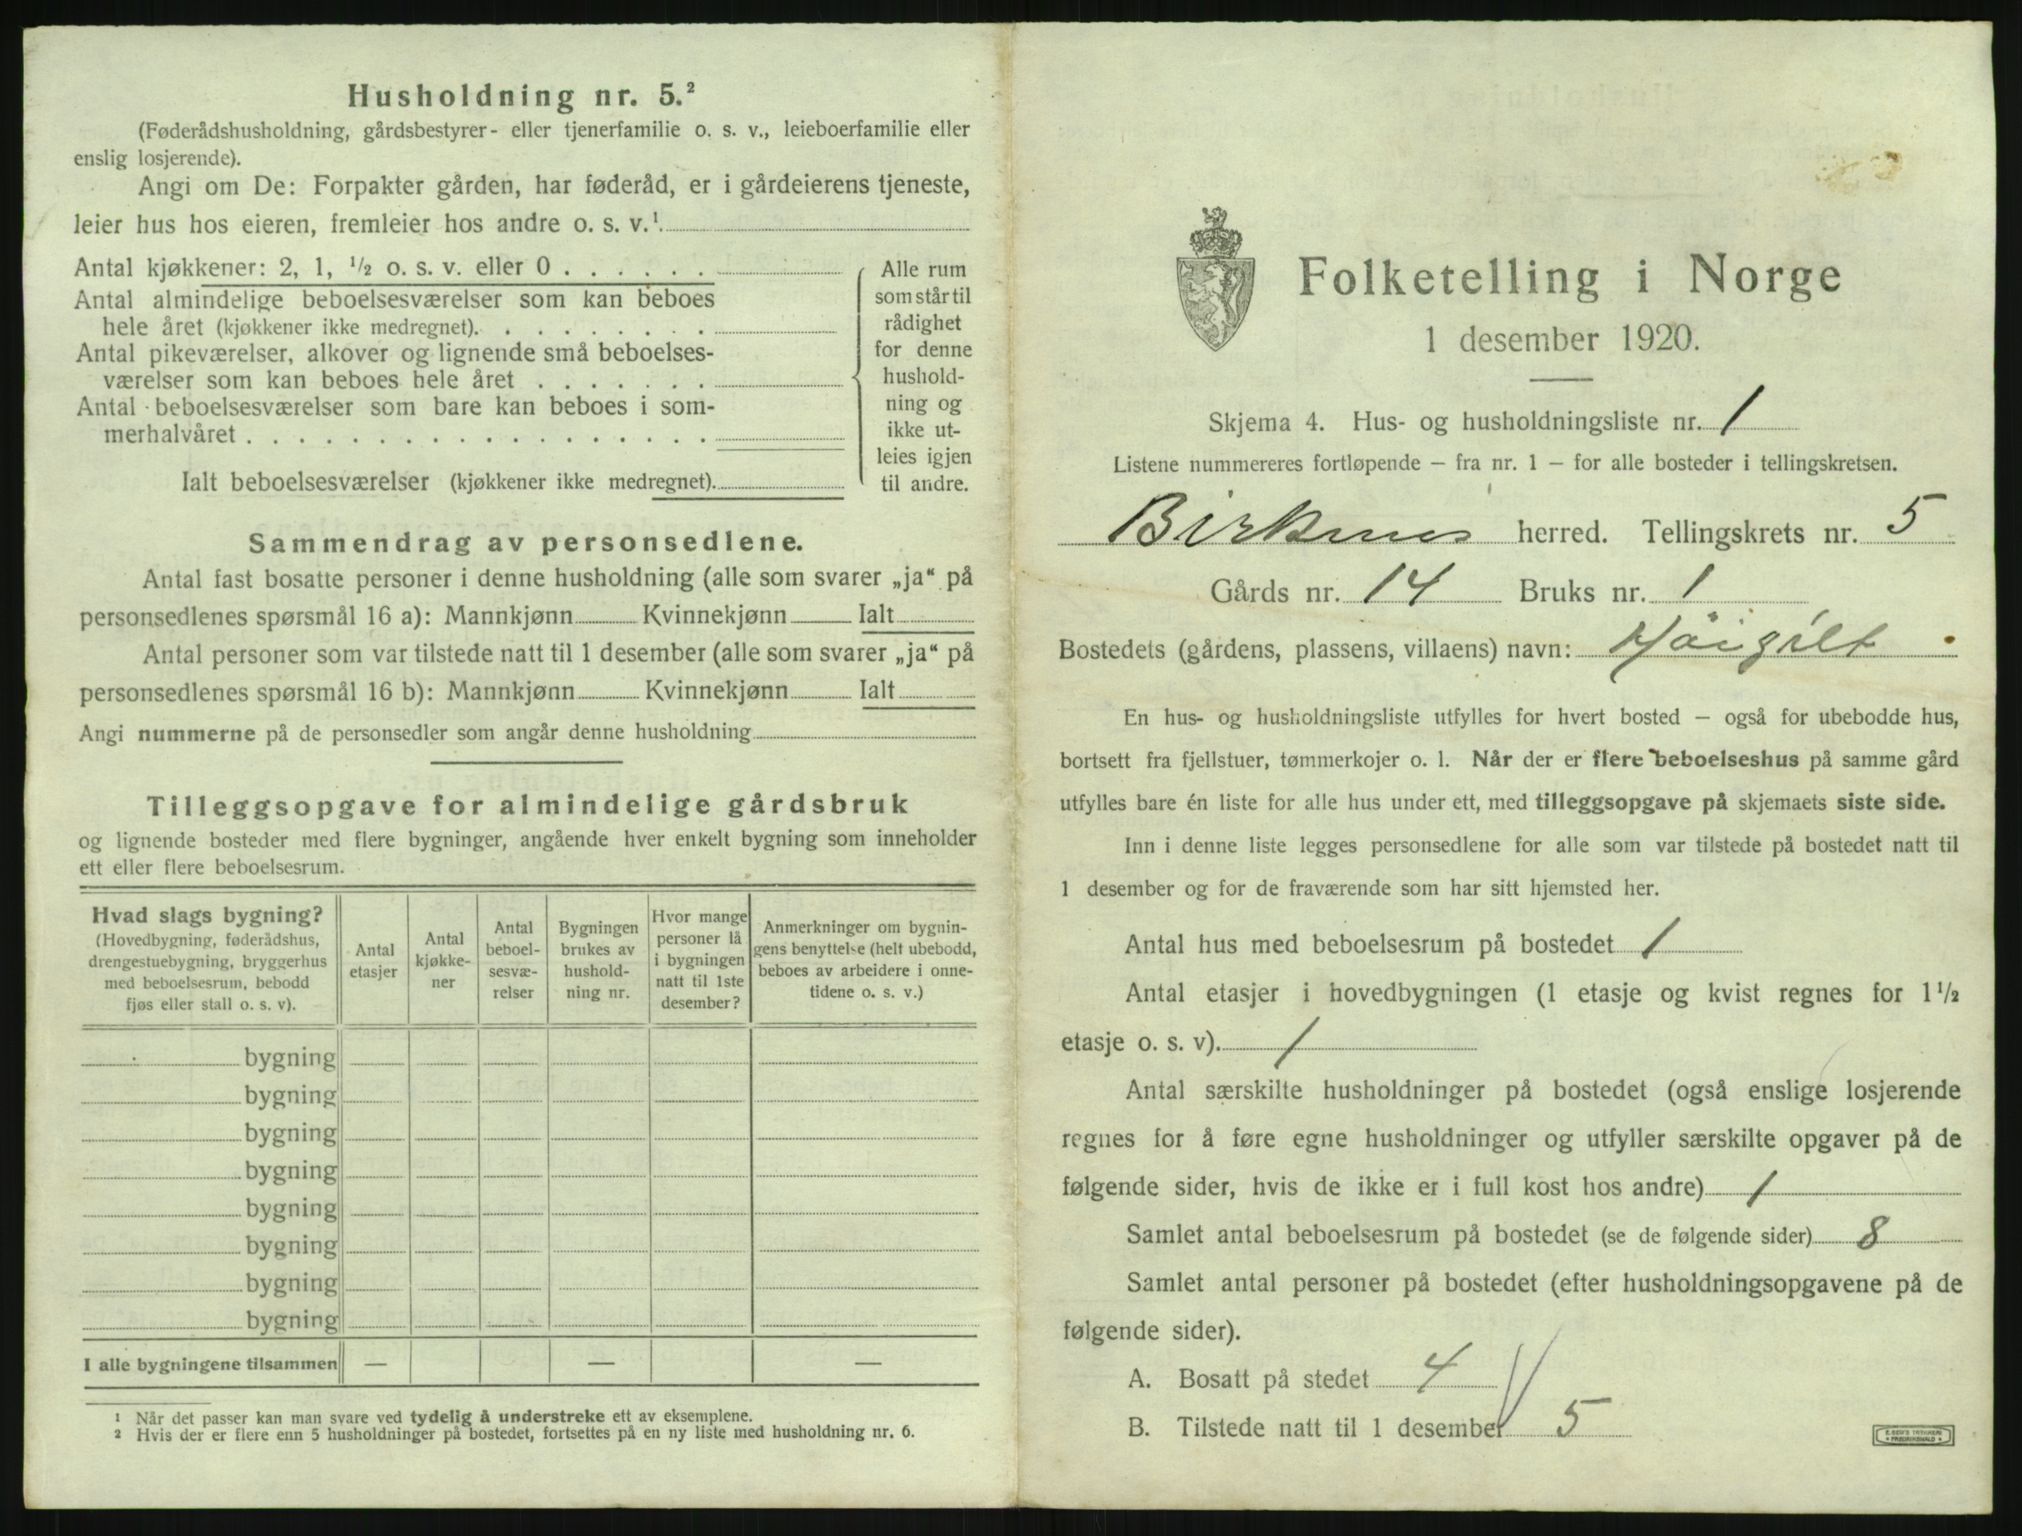 Husholdning nr. 5.²
(Føderådshusholdning, gårdsbestyrer- eller tjenerfamilie o. s. v., leieboerfamilie eller
enslig losjerende).
Angi om De: Forpakter gården, har føderåd, er i gårdeierens tjeneste,
leier hus hos eieren, fremleier hos andre o. s. v.¹
Antal kjøkkener: 2, 1, ½ o. s. v. eller 0 . . . . . .
Antal almindelige beboelsesværelser som kan beboes
hele året (kjøkkener ikke medregnet). . . . . . . . .
Antal pikeværelser, alkover og lignende små beboelses-
værelser som kan beboes hele året . . . . . . .
Antal beboelsesværelser som bare kan beboes i som-
merhalvåret . . . . . . . . . . . . . . . . . .
Ialt beboelsesværelser (kjøkkener ikke medregnet).
Alle rum
som står til
rådighet
for denne
hushold-
ning og
ikke ut-
leies igjen
til andre.
Sammendrag av personsedlene.
Antal fast bosatte personer i denne husholdning (alle som svarer „ja“ på
personsedlenes spørsmål 16 a): Mannkjønn Kvinnekjønn Ialt
Antal personer som var tilstede natt til 1 desember (alle som svarer „ja“ på
personsedlenes spørsmål 16 b): Mannkjønn Kvinnekjønn Ialt
Angi nummerne på de personsedler som angår denne husholdning
Tilleggsopgave for almindelige gårdsbruk
og lignende bosteder med flere bygninger, angående hver enkelt bygning som inneholder
ett eller flere beboelsesrum.
Hvad slags bygning?
(Hovedbygning, føderådshus,
drengestuebygning, bryggerhus
med beboelsesrum, bebodd
fjøs eller stall o. s. v).
Antal
etasjer
Antal
kjøkke-
ner
Antal
beboel-
sesvæ-
relser
Bygningen
brukes av
hushold-
ning nr.
Hvor mange
personer lå
i bygningen
natt til 1ste
desember?
Anmerkninger om bygnin-
gens benyttelse (helt ubebodd,
beboes av arbeidere i onne-
tidene o. s. v.)
bygning
bygning
bygning
bygning
bygning
bygning
bygning
bygning
I alle bygningene tilsammen — — —
¹ Når det passer kan man svare ved tydelig å understreke ett av eksemplene.
² Hvis der er flere enn 5 husholdninger på bostedet, fortsettes på en ny liste med husholdning nr. 6.
Folketelling i Norge
1 desember 1920.
Skjema 4. Hus- og husholdningsliste nr. 1
Listene nummereres fortløpende – fra nr. 1 – for alle bosteder i tellingskretsen.
Birkenes herred. Tellingskrets nr. 5
Gårds nr. 14 Bruks nr. 1
Bostedets (gårdens, plassens, villaens) navn: Höigilt
En hus- og husholdningsliste utfylles for hvert bosted – også for ubebodde hus,
bortsett fra fjellstuer, tømmerkojer o. l. Når der er flere beboelseshus på samme gård
utfylles bare én liste for alle hus under ett, med tilleggsopgave på skjemaets siste side.
Inn i denne liste legges personsedlene for alle som var tilstede på bostedet natt til
1 desember og for de fraværende som har sitt hjemsted her.
Antal hus med beboelsesrum på bostedet 1
Antal etasjer i hovedbygningen (1 etasje og kvist regnes for 1½
etasje o. s. v). 1
Antal særskilte husholdninger på bostedet (også enslige losjerende
regnes for å føre egne husholdninger og utfyller særskilte opgaver på de
følgende sider, hvis de ikke er i full kost hos andre) 1
Samlet antal beboelsesrum på bostedet (se de følgende sider) 8
Samlet antal personer på bostedet (efter husholdningsopgavene på de
følgende sider).
A. Bosatt på stedet 4
B. Tilstede natt til 1 desember 5